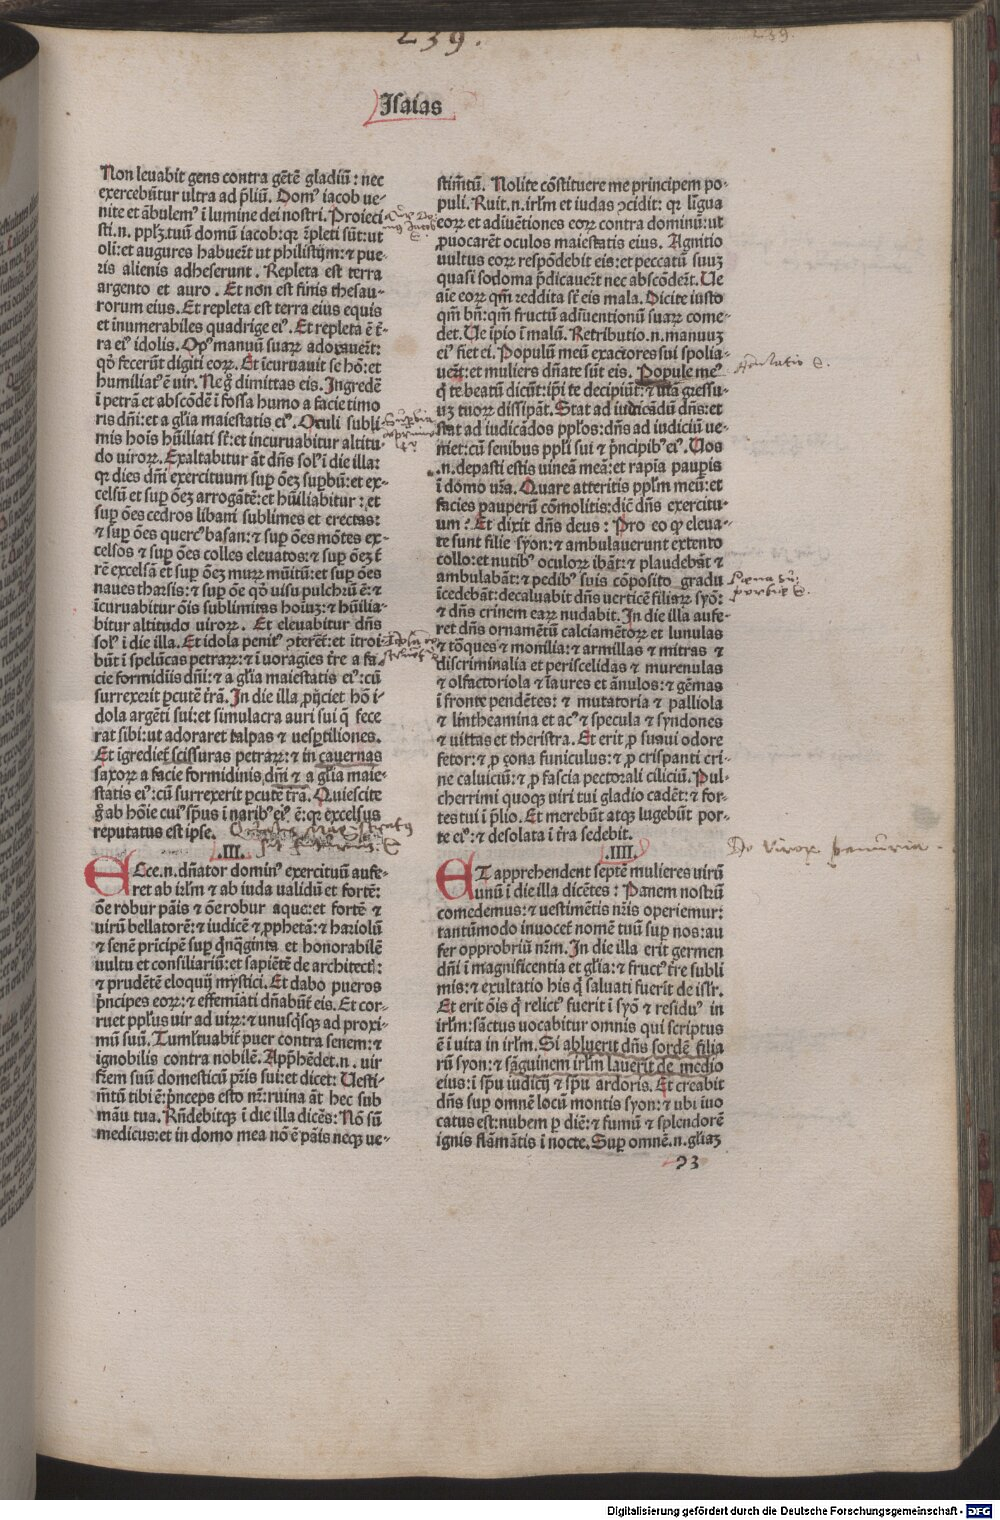 239.
239.
Isaias
Non leuabit gens contra gẽtẽ gladiũ : nec
exercebũtur ultra ad p̃liũ. Domꝰ iacob ue-
nite et ãbulemꝰ ĩ lumine dei nostri. Proieci
sti.n. pplʒ tuũ domũ iacob: qꝛ ĩpleti sũt: ut
oli: et augures habuẽt ut philistijm: ⁊ pue-
ris alienis adheserunt. Repleta est terra
argento et auro. Et non est finis thesau-
rorum eius. Et repleta est terra eius equis
et innumerabiles quadrige eiꝰ. Et repleta ẽ t̃-
ra eiꝰ idolis. Opꝰ manuũ suaꝝ adorauẽt:
qð fecerũt digiti eoꝝ. Et ĩcuruauit se hõ: et
humiliatꝰ ẽ uir. Ne gͦ dimittas eis. Ingredẽ
ĩ petrã et abscõdẽ ĩ fossa humo a facie timo
ris dñi: et a glĩa maiestatis eiꝰ. Oculi subli-
mis hoĩs hũiliati sũt: et incuruabitur altitu-
do uiroꝝ. Exaltabitur ãt dñs solꝰ ĩ die illa:
qꝛ dies dñi exercituum suꝑ õeʒ suꝑbũ: et ex-
celsũ et suꝑ õeʒ arrogãtẽ: et hũiliabitur : et
suꝑ ões cedros libani sublimes et erectas:
⁊ suꝑ ões quercꝰ basan: ⁊ suꝑ ões mõtes ex-
celsos ⁊ suꝑ ões colles eleuatos: ⁊ suꝑ õeʒ t̃
rẽ excelsã et suꝑ õeʒ muꝝ mũitũ: et suꝑ ões
naues tharsis: ⁊ suꝑ õe qð uisu pulchrũ ẽ: ⁊
ĩcuruabitur õis sublimitas hoĩuʒ: ⁊ hũilia-
bitur altitudo uiroꝝ. Et eleuabitur dñs
solꝰ ĩ die illa. Et idola penitꝰ ꝯterẽt: et ĩtroi-
bũt ĩ spelũcas petraꝝ: ⁊ ĩ uoragĩes t̃re a fa-
cie formidĩis dñi: ⁊ a glĩa maiestatis eiꝰ: cũ
surrexerit ꝑcutẽ t̃rã. In die illa ꝓijciet hõ i-
dola argẽti sui: et simulacra auri sui q̃ fece
rat sibi: ut adoraret talpas ⁊ uesꝑtiliones.
Et ĩgrediet̃ scissuras petraꝝ: ⁊ in cauernas
saxoꝝ a facie formidinis dñi ⁊ a glĩa maie-
statis eiꝰ: cũ surrexerit ꝑcutẽ t̃rã. Quiescite
gͦ ab hoĩe cuiꝰ sp̃us ĩ naribꝰ eiꝰ ẽ: qꝛ excelsus
reputatus est ipse.
.III.
ECce.n. dñator dominꝰ exercituũ aufe-
ret ab irlm̃ ⁊ ab iuda ualidũ et fortẽ:
õe robur pãis ⁊ õe robur aque: et fortẽ ⁊
uirũ bellatorẽ: ⁊ iudicẽ ⁊ ꝓphetã: ⁊ hariolũ
⁊ senẽ prĩcipẽ suꝑ q̃nq̃ginta et honorabilẽ
uultu et consiliariũ: et sapiẽtẽ de architectꝭ:
⁊ prudẽtẽ eloquij mystici. Et dabo pueros
p̃ncipes eoꝝ: ⁊ effemiati dñabũt̃ eis. Et cor-
ruet pplus uir ad uiꝝ: ⁊ unusq̃sqʒ ad proxi-
mũ suũ. Tumltuabit̃ puer contra senem: ⁊
ignobilis contra nobilẽ. App̃hẽdet.n. uir
fr̃em suũ domesticũ pr̃is sui: et dicet: Uesti-
mt̃ũ tibi ẽ: p̃nceps esto nr̃: ruina ãt hec sub
mãu tua. Rñdebitqʒ ĩ die illa dicẽs: Nõ sũ
medicus: et in domo mea nõ ẽ pãis neqʒ ue-
stim̃tũ. Nolite cõstituere me principem po-
puli. Ruit.n. irlm̃ et iudas ꝯcidit: qꝛ lĩgua
eoꝝ et adĩuẽtiones eoꝝ contra dominũ: ut
ꝓuocarẽt oculos maiestatis eius. Agnitio
uultus eoꝝ respõdebit eis: et peccatũ suuʒ
quasi sodoma p̃dicauert̃ nec abscõdert̃. Ue
aĩe eoꝝ qm̃ reddita st̃ eis mala. Dicite iusto
qm̃ bñ: qm̃ fructũ adĩuentionũ suaꝝ come-
det. Ue ĩpio ĩ malũ. Retributio.n. manuuʒ
eiꝰ fiet ei. Populũ meũ exactores sui spolia-
uert̃: et muliers dñate sũt eis. Popule meꝰ
q̃ te beatũ dicũt: ipĩ te decipiũt: ⁊ uiã gressu-
uʒ tuoꝝ dissipãt. Stat ad iudicãdũ dñs: et
stat ad iudicãdos pplos: dñs ad iudiciũ ue-
niet: cũ senibus ppli sui ⁊ p̃ncipibꝰ eiꝰ. Uos
.n. depasti estis uineã meã: et rapĩa pauꝑis
ĩ domo ur̃a. Quare atteritis pplm̃ meũ: et
facies pauperũ cõmolitis: dic̃ dñs exercitu-
um? Et dixit dñs deus : Pro eo ꝙ eleua-
te sunt filie syon: ⁊ ambulauerunt extento
collo: et nutibꝰ oculoꝝ ibãt: ⁊ plaudebãt ⁊
ambulabãt: ⁊ pedibꝰ suis cõposito gradu
ĩcedebãt: decaluabit dñs uerticẽ filiaꝝ syõ:
⁊ dñs crinem eaꝝ nudabit. In die illa aufe-
ret dñs ornamẽtũ calciamẽtoꝝ et lunulas
⁊ tõques ⁊ monilia: ⁊ armillas ⁊ mitras ⁊
discriminalia et periscelidas ⁊ murenulas
⁊ olfactoriola ⁊ ĩaures et ãnulos: ⁊ gẽmas
ĩ fronte pendẽtes: ⁊ mutatoria ⁊ palliola
⁊ lintheamina et acꝰ ⁊ specula ⁊ syndones
⁊ uittas et theristra. Et erit ꝓ suaui odore
fetor: ⁊ ꝓ çona funiculus: ⁊ ꝓ crispanti cri-
ne caluiciũ: ⁊ ꝓ fascia pectorali ciliciũ. Pul-
cherrimi quoqʒ uiri tui gladio cadẽt: ⁊ for-
tes tui ĩ p̃lio. Et merebũt atqʒ lugebũt por-
te eiꝰ: ⁊ desolata ĩ t̃ra sedebit.
.IIII.
ET apprehendent septẽ mulieres uirũ
unũ ĩ die illa dicẽtes : Panem nostrũ
comedemus: ⁊ uestimẽtis nr̃is operiemur:
tantũmodo inuocet̃ nomẽ tuũ suꝑ nos: au
fer opprobriũ nr̃m. In die illa erit germen
dñi ĩ magnificentia et glĩa: ⁊ fructꝰ t̃re subli
mis: ⁊ exultatio his q̃ saluati fuerĩt de isrl̃.
Et erit õis q̃ relictꝰ fuerit ĩ syõ ⁊ residuꝰ in
irlm̃: sãctus uocabitur omnis qui scriptus
ẽ ĩ uita in irlm̃. Si abluerit dñs sordẽ filia
rũ syon: ⁊ sãguinem irlm̃ lauerit de medio
eius: ĩ sp̃u iudicij ⁊ sp̃u ardoris. Et creabit
dñs suꝑ omnẽ locũ montis syon: ⁊ ubi iuo
catus est: nubem ꝑ diẽ: ⁊ fumũ ⁊ splendorẽ
ignis flãmãtis ĩ nocte. Suꝑ omnẽ.n. glĩaʒ
De viroꝝ penuria
Digitalisierung gefördert durch die Deutsche Forschungsgemeinschaft - DFG